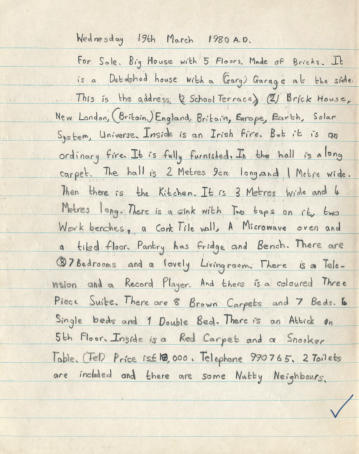 Wednesday 19th March 1980 A.D.
For Sale. Big House with 5 Floors. Made of Bricks. It
is a Detatched house with a (Garg) Garage at the side.
This is the address, (2 School Terrace) (2) Brick House,
New London, (Britain,) England, Britain, Europe, Earth, Solar
System, Universe. Inside is an Irish Fire. But it is an
ordinary fire. It is fully furnished. In the hall is a long
carpet. The hall is 2 Metres 9cm long and 1 Metre wide.
Then there is the Kitchen. It is 3 Metres Wide and 6
Metres long. There is a sink with Two taps on it, two
Work benches, a Cork Tile wall, A Microwave oven and
a tiled floor. Pantry has fridge and Bench. There are
7 Bedrooms and a lovely Livingroom. There is a Tele-
nsion and a Record Player. And there is a coloured Three
Piece Suite. There are 8 Brown Carpets and 7 Beds. 6
Single beds and 1 Double Bed. There is an Attick on
5th Floor. Inside is a Red Carpet and a Snooker
Table. (Tel) Price is £ ,000. Telephone 990765. 2 Toilets
are included and there are some Nutty Neighbours.